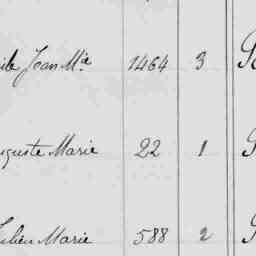 Jean Mie 1464 3
Auguste Marie 22 1
Julien Marie 588 2